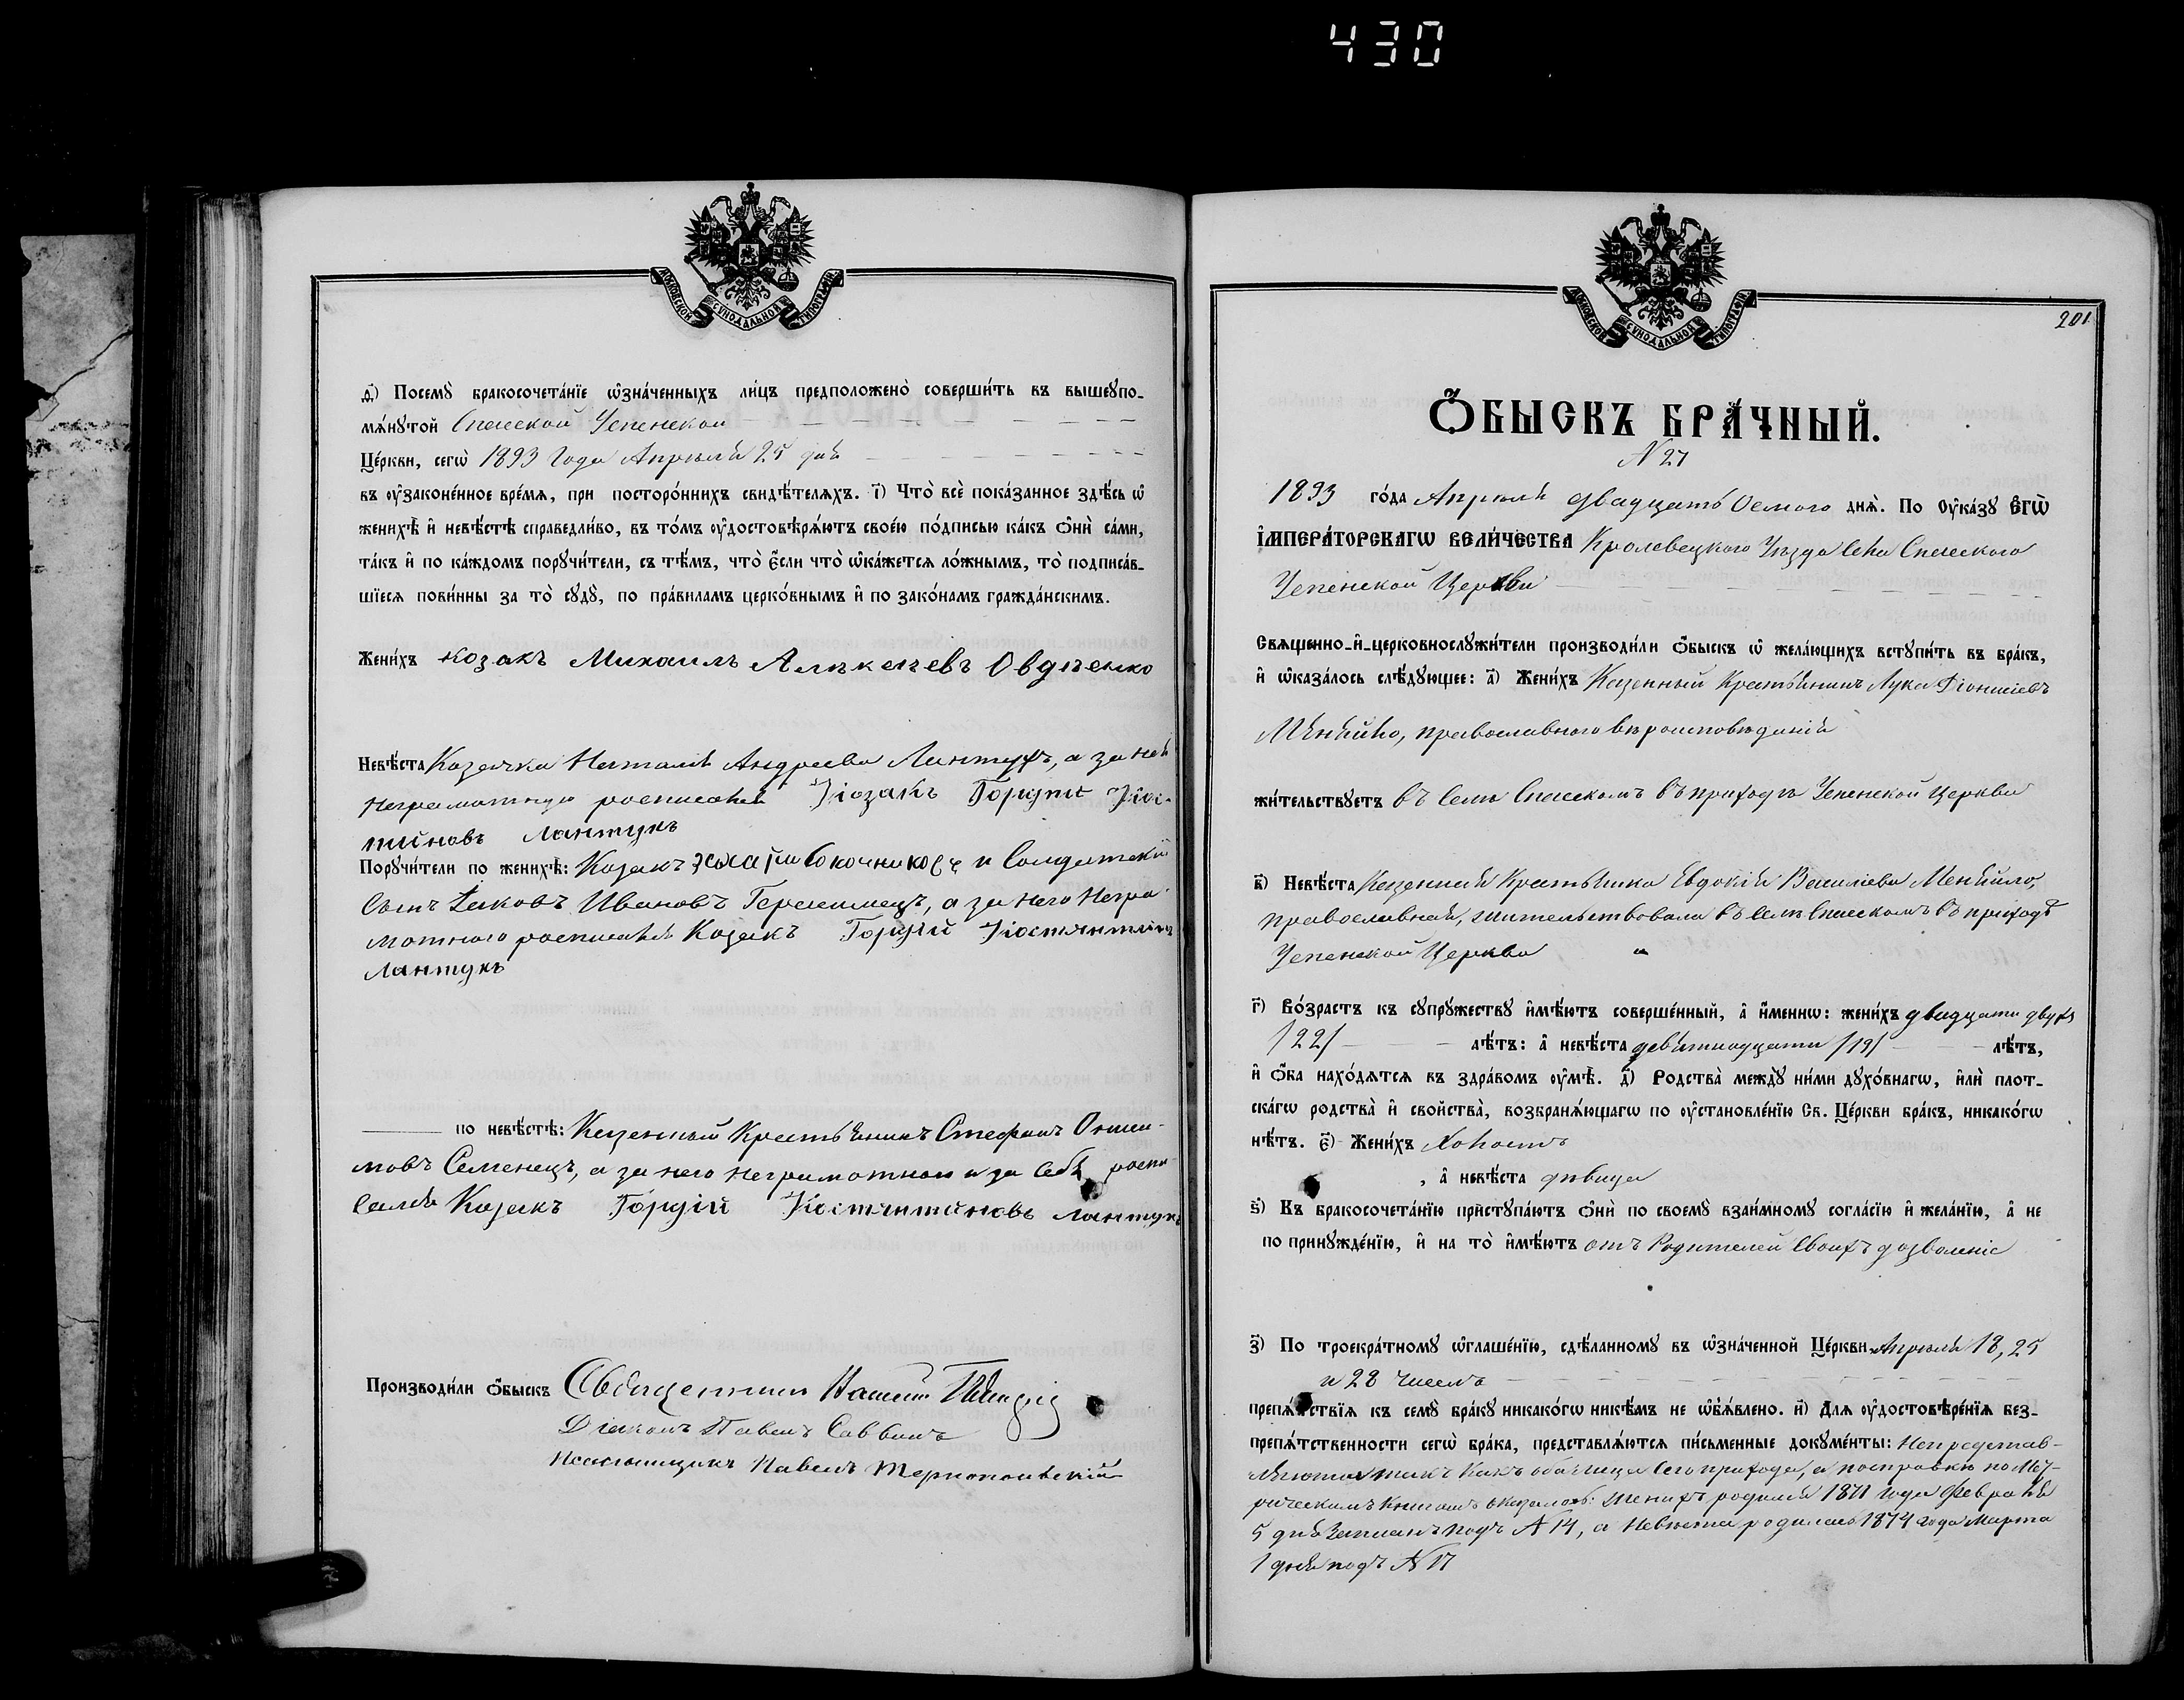 430
МОСКОВСКОЙ СѴНОДАЛЬНОЙ ТИПОГРАФІИ
д҃) Посемꙋ̀ бракосочета́нїе ѡ҆зна́ченныхъ ли́цъ предположено̀ соверши́ть въ вышеꙋпо-
мѧ́нꙋтой Спасской Успенской
Це́ркви, сегѡ̀ 1893 Года Апрѣля 25 дня
въ ᲂу҆законе́нное вре́мѧ, при посторо́ннихъ свидѣ́телѧхъ. і҃) Что̀ всѐ пока́занное здѣ́сь ѡ҆
женихѣ̀ и҆ невѣ́стѣ справедли́во, въ то́мъ ᲂу҆достовѣрѧ́ютъ свое́ю по́дписью ка́къ ѻ҆нѝ са́ми,
та́къ и҆ по ка́ждомъ порꙋчи́тели, съ тѣ́мъ, что̀ є҆́сли что̀ ѡ҆ка́жетсѧ ло́жнымъ, то̀ подписа́в-
шїесѧ пови́нны за то̀ сꙋдꙋ̀, по пра́виламъ церко́внымъ и҆ по зако́намъ гражда́нскимъ.
Жени́хъ козакъ Михаилъ Алѣкеевъ Овдѣенко
Невѣ́ста Козачка Наталія Андреева Лантухъ, а за ней
неграмотную росписался Козакъ Гордѣй Кос-
тиновъ Лантухъ
Порꙋчи́тели по женихѣ̀: Козакъ и Солдатскій
сынъ Яковъ Ивановъ Герасимецъ, а за него негра-
мотного росписался Козакъ Гордѣй Костянтинъ
Лантухъ
по невѣ́стѣ: Казенный Крестьянинъ Стефанъ
мовъ Семенецъ, а за него неграмотного и за себя роспи-
сался Козакъ Гордѣй Костянтиновъ Лантухъ
Производи́ли ѻ҆́быскъ Священникъ
Діаконъ Павелъ Саввинъ
Псаломщикъ Павелъ
МОСКОВСКОЙ СѴНОДАЛЬНОЙ ТИПОГРАФІИ
201
Ѻ҆́БЫСКЪ БРА́ЧНЫЙ.
N 27
1893 го́да Апрѣля двадцать Осмого днѧ̀. По ᲂу҆ка́зꙋ Є҆ГѠ̀
І҆МПЕРА́ТОРСКАГѠ ВЕЛИ́ЧЕСТВА Кролевецкого Уѣзда Села Спасского
Успенской Церкви
Свѧщенно-и҆-церковнослꙋжи́тели производи́ли ѻ҆́быскъ ѡ҆ жела́ющихъ встꙋпи́ть въ бра́къ,
и҆ ѡ҆каза́лось слѣ́дꙋющее: а҃) Жени́хъ Казенный Крестьянинъ Лука Діонисіевъ
Мѣняйло, православного вѣроисповѣданія
жи́тельствꙋетъ въ Селѣ Спасскомъ въ приходѣ Успенской церкви
в҃) Невѣ́ста Казенная Крестьянка Евдокія Василіева Меняйло,
православная, жительствовала въ Селѣ Спасскомъ въ приходѣ
Успенской Церкви
г҃) Во́зрастъ къ сꙋпрꙋ́жествꙋ и҆мѣ́ютъ соверше́нный, а҆ и҆́меннѡ: жени́хъ двадцати двухъ
/22/ лѣ́тъ: а҆ невѣ́ста девятнадцати /19/ лѣ́тъ,
и҆ ѻ҆́ба нахо́дѧтсѧ въ здра́вомъ ᲂу҆мѣ̀. д҃) Родства̀ междꙋ̀ ни́ми дꙋхо́внагѡ, и҆лѝ плот-
ска́гѡ родства̀ и҆ свойства̀, возбранѧ́ющагѡ по ᲂу҆становле́нїю Св. Це́ркви бра́къ, никако́гѡ
нѣ́тъ. є҃) Жени́хъ Холостъ
, а҆ невѣ́ста дѣвица
ѕ҃) Къ бракосочета́нїю пристꙋпа́ютъ ѻ҆нѝ по своемꙋ̀ взаи́мномꙋ согла́сїю и҆ жела́нїю, а҆ не
по принꙋжде́нїю, и҆ на то̀ и҆мѣ́ютъ отъ Родителей своихъ дозволеніе
з҃) По троекра́тномꙋ ѡ҆глаше́нїю, сдѣ́ланномꙋ въ ѡ҆зна́ченной Це́ркви Апрѣля 18, 25
и 28 числа
препѧ́тствїѧ къ семꙋ̀ бра́кꙋ никако́гѡ никѣ́мъ не ѡ҆б̾ѧ́влено. и҃) Длѧ ᲂу҆достовѣре́нїѧ без-
препѧ́тственности сегѡ̀ бра́ка, представлѧ́ютсѧ пи́сьменные докꙋме́нты: непредстав-
ляются такъ какъ оба лица сего прихода, а по справкѣ по Мет-
рическимъ книгамъ оказалось: женихъ родился 1871 года Февраля
5 дня записанъ подъ N 14, а невѣста родилась 1874 года Марта
1 дня подъ N 17